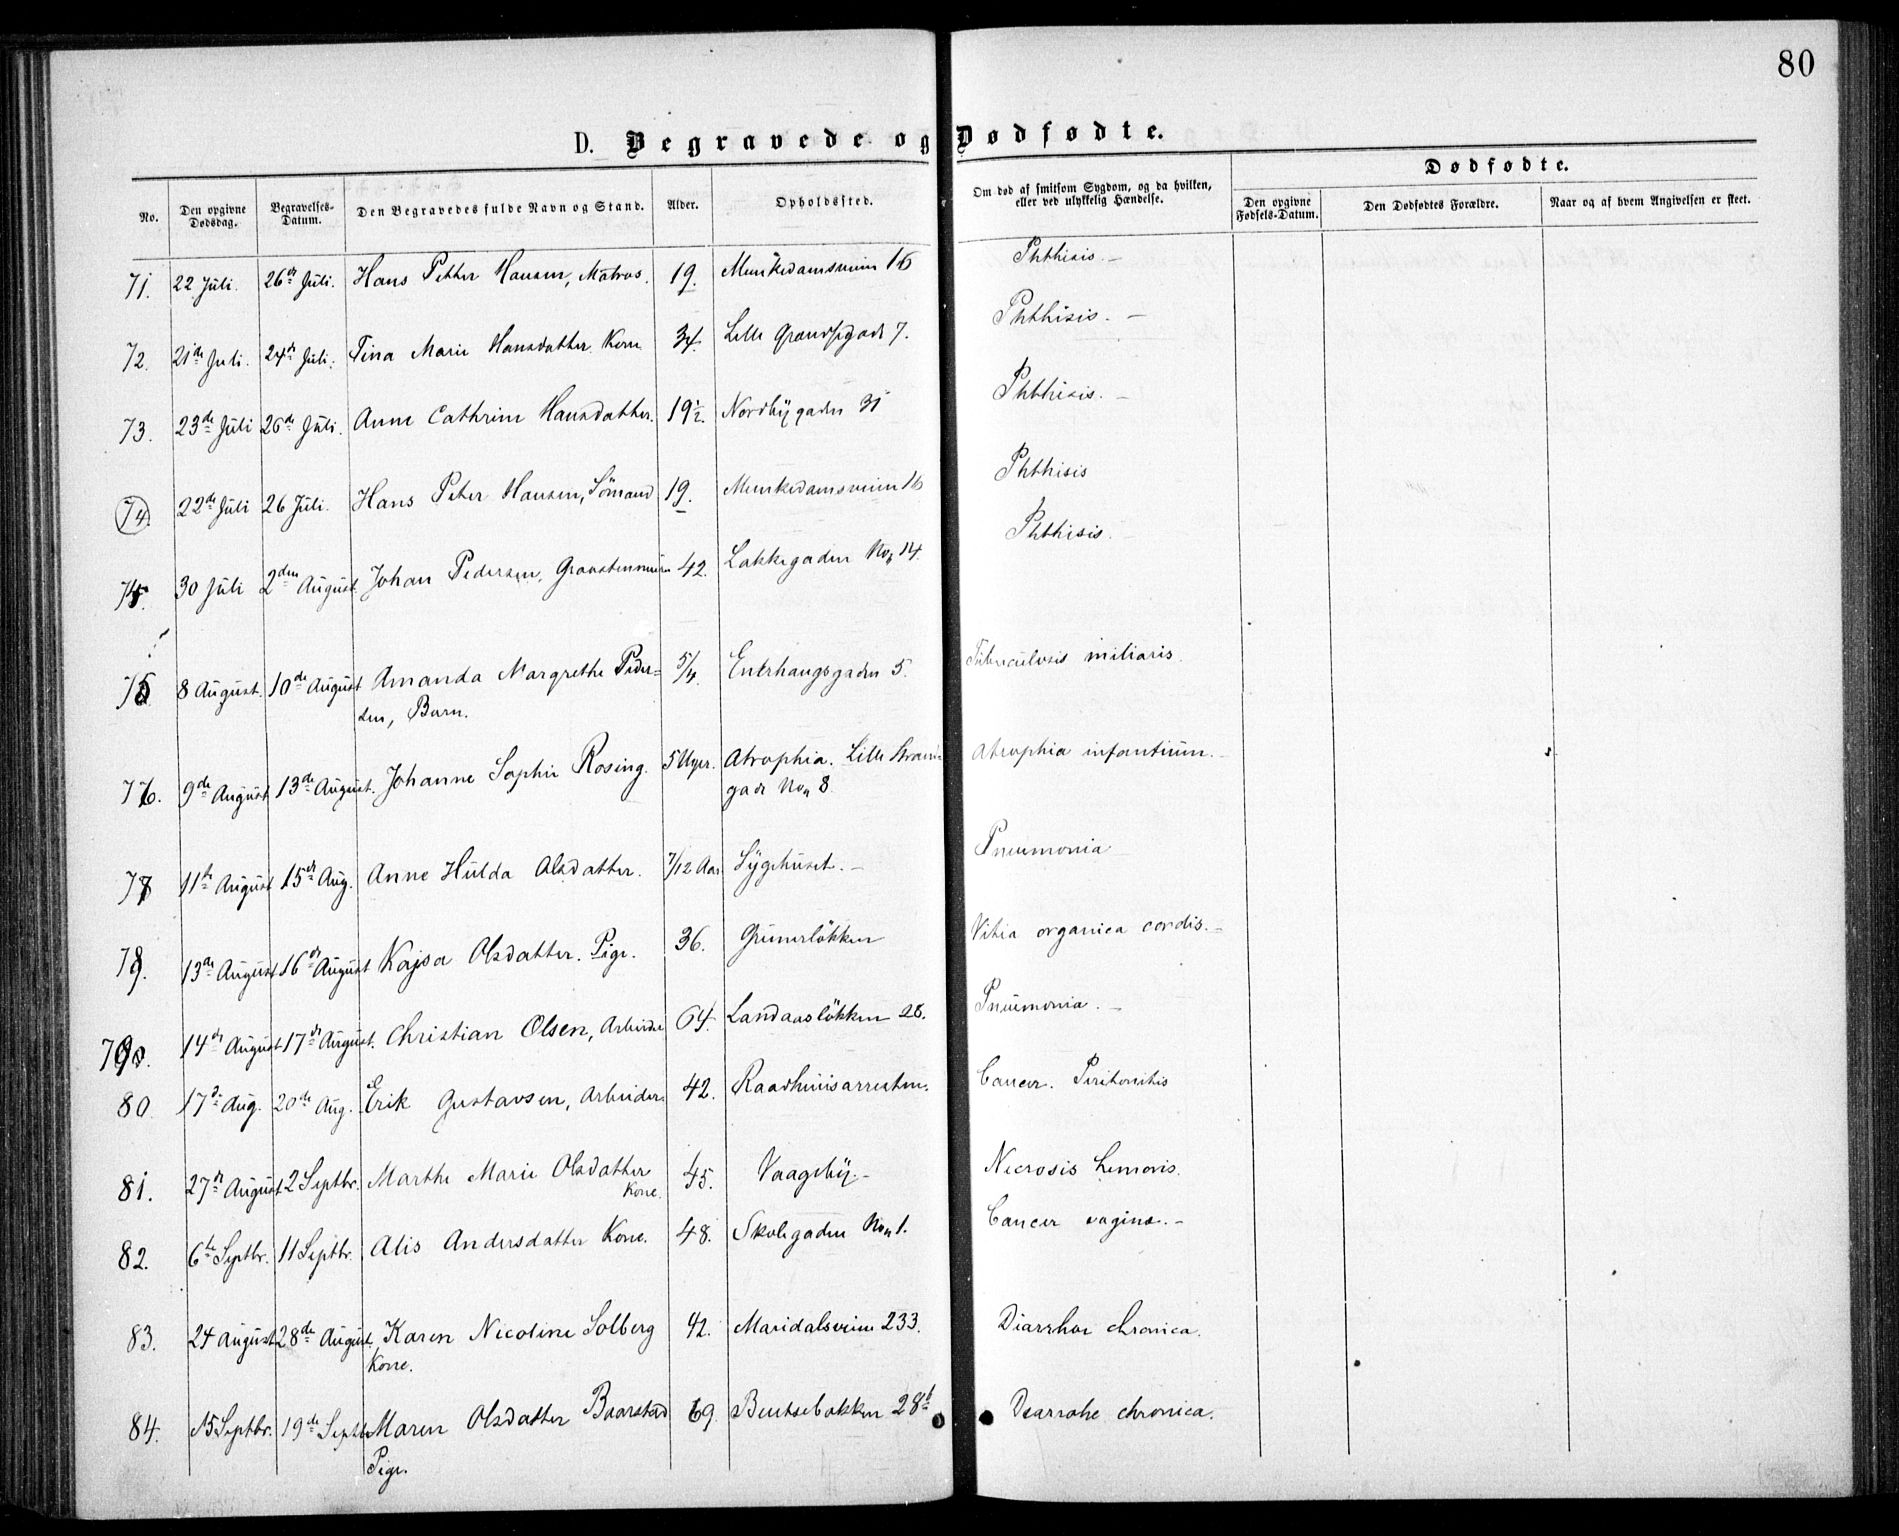 80
D. Begravede og Dødfødte.
No. | Den opgivne Dødsdag. | Begravelses-Datum. | Den Begravedes fulde Navn og Stand. | Alder. | Opholdssted. | Om død af smitsom Sygdom, og da hvilken, eller ved ulykkelig Hændelse. | Dødfødte. | Den opgivne Fødsels-Datum. | Den Dødfødtes Forældre. | Naar og af hvem Angivelsen er skeet.
71. 22 Juli. 26de Juli. Hans Petter Hansen, Matros. 19. Munkedamsveien 16 Phthisis.
72. 21de Juli. 24de Juli. Tina Marie Hansdatter Kone 34. Lille Grændsegade 7. Phthisis.
73. 23de Juli 26de Juli. Anne Cathrine Hansdatter. 19½. Nordbygaden 31 Phthisis.
74. 22de Juli 26 Juli. Hans Peter Hansen, Sömand 19. Munkedamsveien 16 Phthisis
75. 30 Juli 2den August. Johan Pedersen, 42. Lakkegaden No. 14. Phthisis.
8 August. 10de August Amanda Margrethe Peder-
sen, Barn. 5/4. Enerhaugsgaden 5. Tuberculosis miliaris.
76. 9de August 13de August. Johanne Sophie Rosing. 5 Uger. Atrophia. Lille Strand-
gade No. 8 Atrophia infantium.
77 11te August 15de Aug. Anne Hulda Olsdatter. 7/12 Aar Sygehuset. Pneumonia
78. 13de August 16de August Kajsa Olsdatter. Pige. 36. Grünerlökken Vitia organica cordis.
79. 14de August 17de August. Christian Olsen, Arbeider 64. Landaaslökken 28. Pneumonia.
80 17de Aug. 20de Aug. Erik Gustavsen, Arbeider. 42. Raadhuusarresten. Cancer. Peritonitis
81. 27de August 2 Septbr. Marthe Marie Olsdatter
Kone. 45. Vaagebÿ. Necrosis femoris.
82. 6te Septbr. 11 Septbr. Alis Andersdatter Kone. 48. Skolegaden No. 1. Cancer vaginæ.
83. 24 August 28de August. Karen Nicoline Solberg
Kone. 42. Maridalsveien 233. Diarrhoe chronica.
84. 15 Septbr. 19de Septbr. Maren Olsdatter Baarstad
Pige. 69. Bentsebakken 28b Diarrohe chronica.